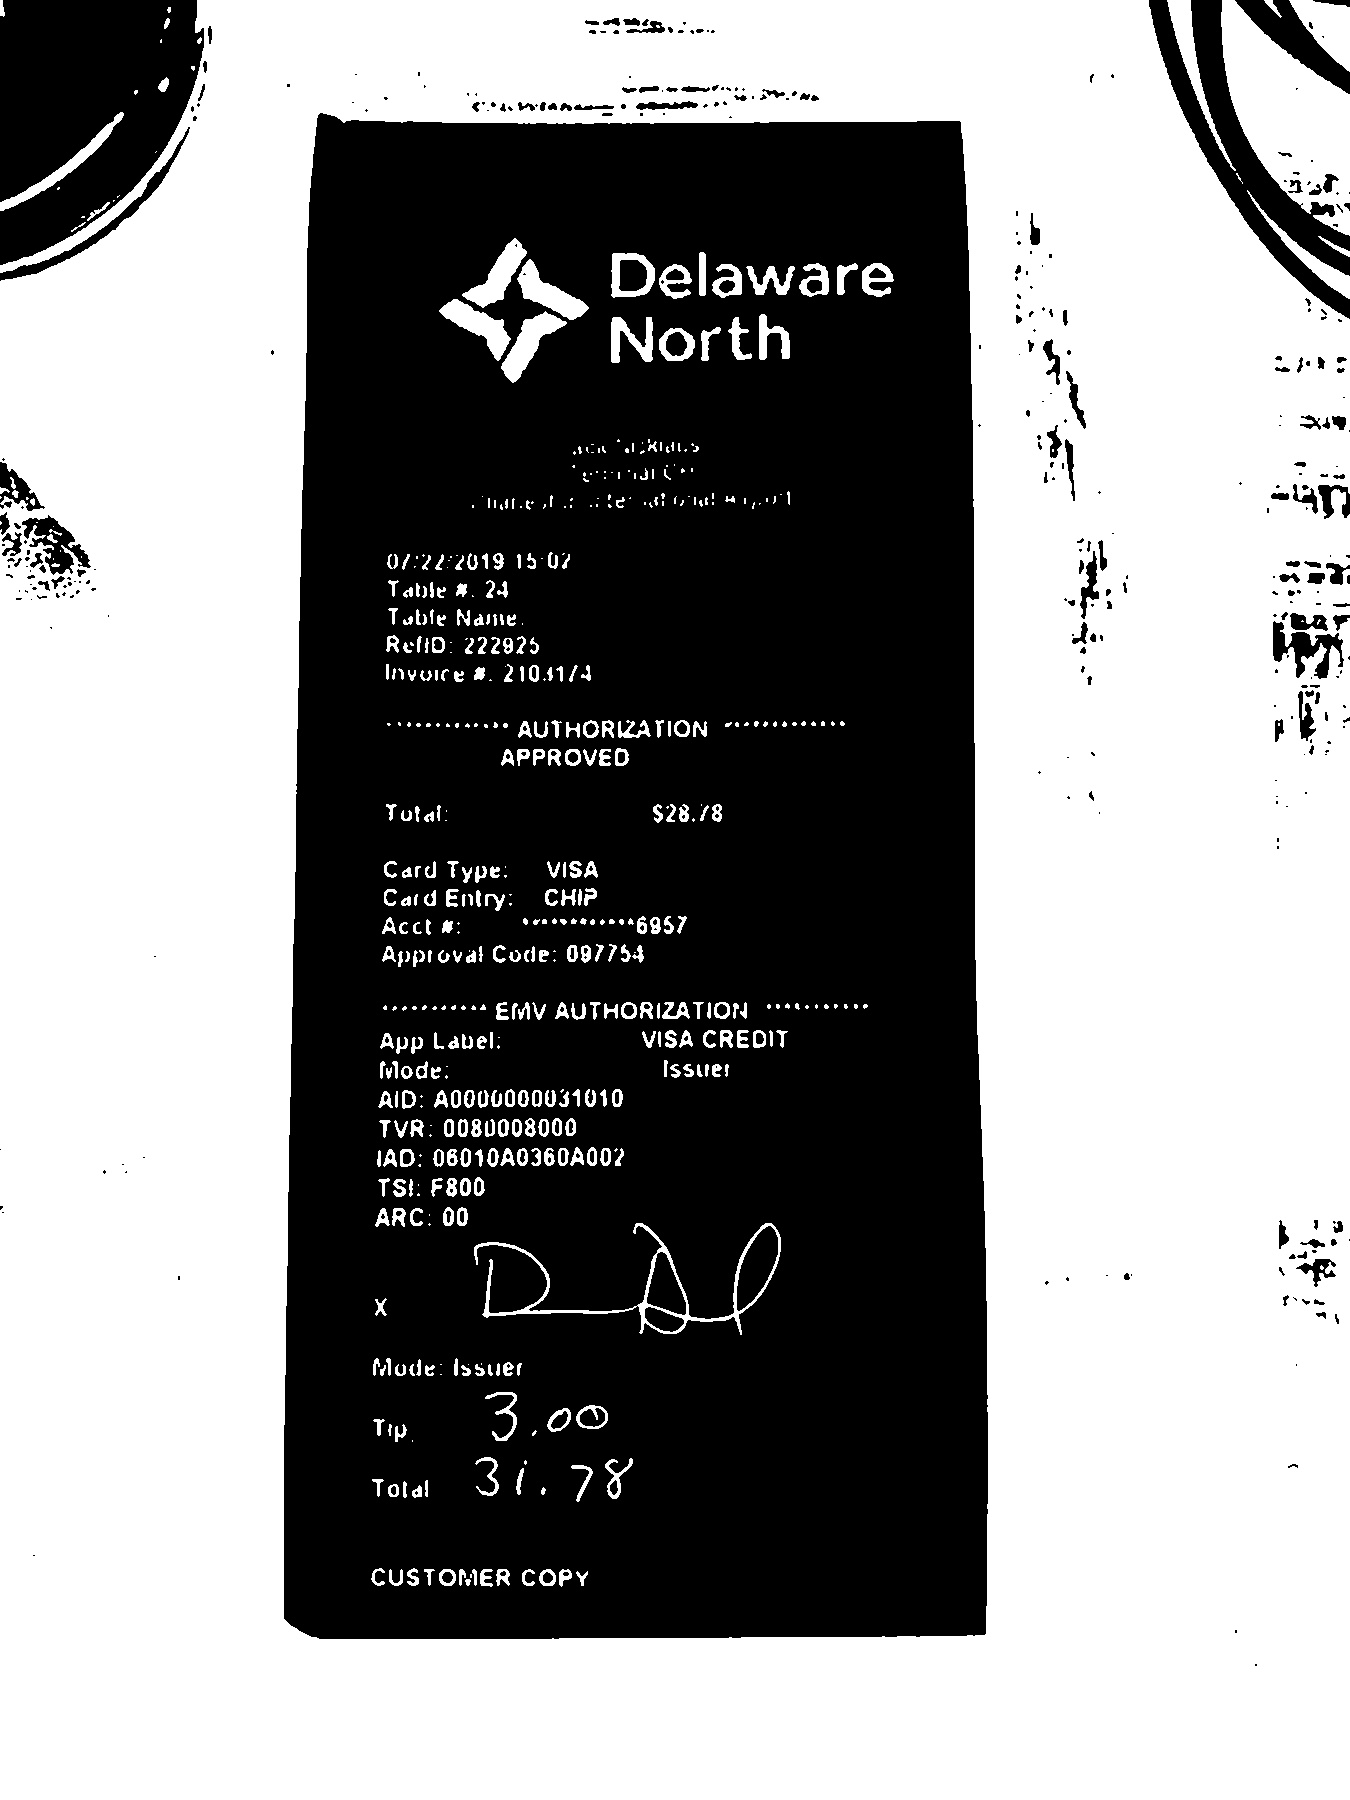 Delaware
North
Jack Nicklaus
International Airport
07/22/2019 15:02
Table #: 24
Table Name:
RefID: 222925
Invoice #: 2103174
************ AUTHORIZATION ************
APPROVED
Total: $28.78
Card Type: VISA
Card Entry: CHIP
Acct #: ************6957
Approval Code: 097754
*********** EMV AUTHORIZATION ***********
App Label: VISA CREDIT
Mode: Issuer
AID: A0000000031010
TVR: 0080008000
IAD: 06010A0360A002
TSI: F800
ARC: 00
X
Mode: Issuer
Tip: 3.00
Total 31.78
CUSTOMER COPY